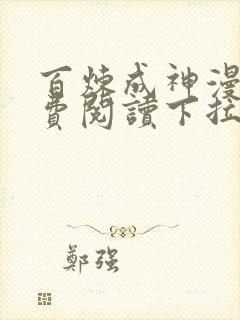 百炼成神漫
费閱讀下拉
鄭强